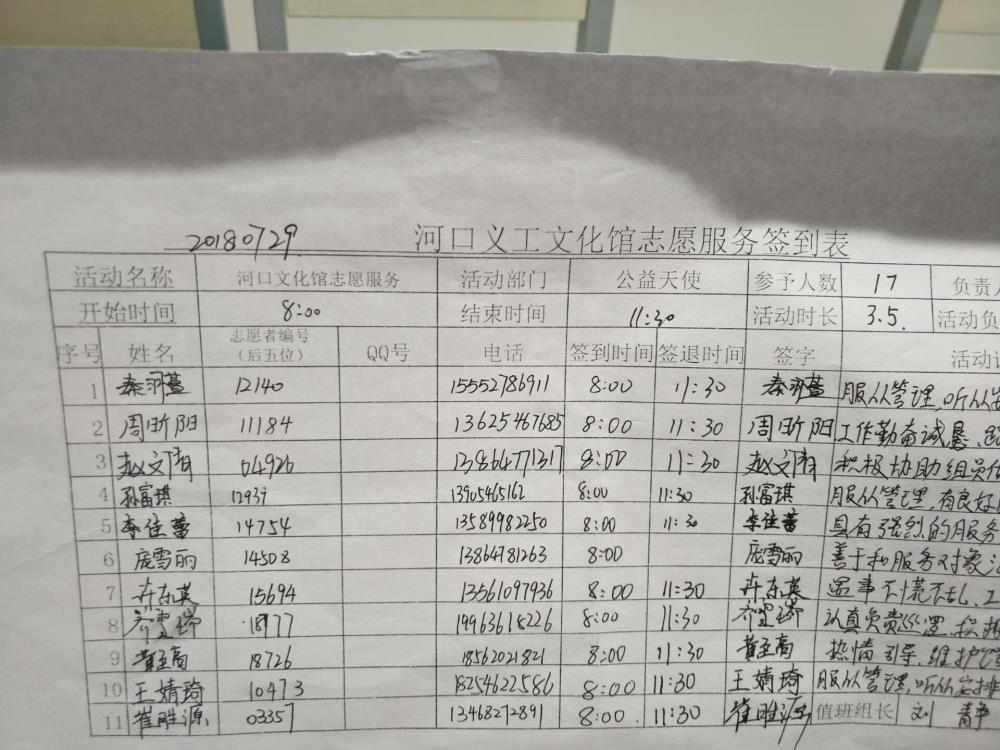 20180729. 河口义工文化馆志愿服务签到表
活动名称 河口文化馆志愿服务 活动部门 公益天使 参予人数 17 负责人
开始时间 8:00 结束时间 11:30 活动时长 3.5. 活动负
序号 姓名 志愿者编号（后五位） QQ号 电话 签到时间 签退时间 签字 活动
1 12140 15552786911 8:00 11:30 服从管理,听从安
2 周昕阳 11184 13625467685 8:00 11:30 周昕阳 工作勤奋诚恳
3 赵文 04926 13864771317 8:00 11:30 赵文 积极协助组员
4 孙富琪 12939 13905465162 8:00 11:30 孙富琪 服从管理,有良好
5 李佳蕾 14754 13589982250 8:00 11:30 李佳蕾 具有强烈的服务
6 庞雪丽 14508 13864781263 8:00 庞雪丽 善于和服务对象
7 15694 13561097936 8:00 11:30 遇事不慌不乱、工
8 18977 19963618226 8:00 11:30 认真负责巡逻.
9 18726 18562021821 8:00 11:30 热情引导、维护
10 王婧琦 10473 18254622586 8:00 11:30 王婧琦 服从管理,听从安排
11 崔胜源 03357 13468272891 8:00. 11:30 崔胜源 值班组长 刘